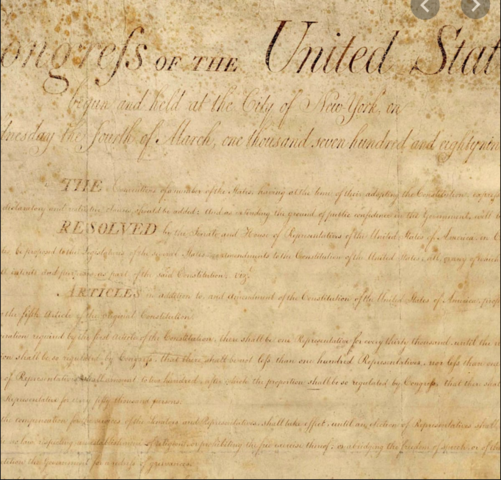 ongreſs OF THE United Stat
begun and held at the City of New York, on
dnesday the fourth of March, one thousand seven hundred and eightynin
THE of the States having at the time of their adopting the Constitution,
declaratory and restrictive clauses should be added: And as extending the ground of public confidence in the Government, will
RESOLVED by the Senate and House of Representatives of the United States of America, in C
be proposed to the Legislatures of the several States, as amendments to the Constitution of the United States, all, or any of which
to all intents and purposes, as part of the said Constitution; viz.
ARTICLES in addition to, and amendment of the Constitution of the United States of America,
the fifth Article of the original Constitution
required by the first article of the Constitution, there shall be one Representative for every thirty thousand, until the
shall be so regulated by Congress, that there shall be not less than one hundred Representatives, nor less than one
of Representatives shall amount to two hundred, after which the proportion shall be so regulated by Congress, that there sha
Representative for every fifty thousand persons
the compensation for the services of the Senators and Representatives, shall take effect, until an election of Representatives shall
no law respecting an establishment of religion, or prohibiting the free exercise thereof; or abridging the freedom of speech, or of
the Government for a redress of grievances